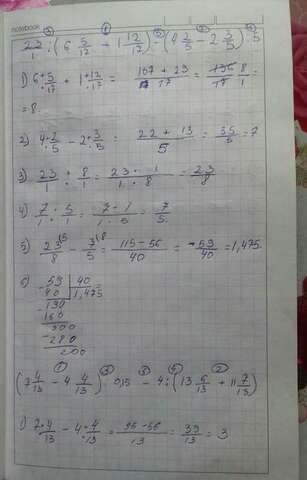 notebook
③ ① ⑤ ② ④
23/1 : (6 5/17 + 1 12/17) - (4 2/5 - 2 3/5) : 5
1) 6+5/17 + 1+12/17 = 107 + 23/17 = 136/17 8/1 =
= 8.
2) 4+2/5 - 2+3/5 = 22 + 13/5 = 35/5 = 7
3) 23/1 : 8/1 = 23 · 1/1 · 8 = 23/8
4) 7/1 : 5/1 = 7 · 1/1 · 5 = 7/5
5) 23/8 - 7/5 = 115 - 56/40 = 59/40 = 1,475
6) 59 | 40
40 | 1,475
190
160
300
280
200
① ③ ④ ②
(7 4/13 - 4 4/13) · 0,15 - 4 : (13 6/13 + 11 7/13)
1) 7+4/13 - 4+4/13 = 95 - 56/13 = 39/13 = 3